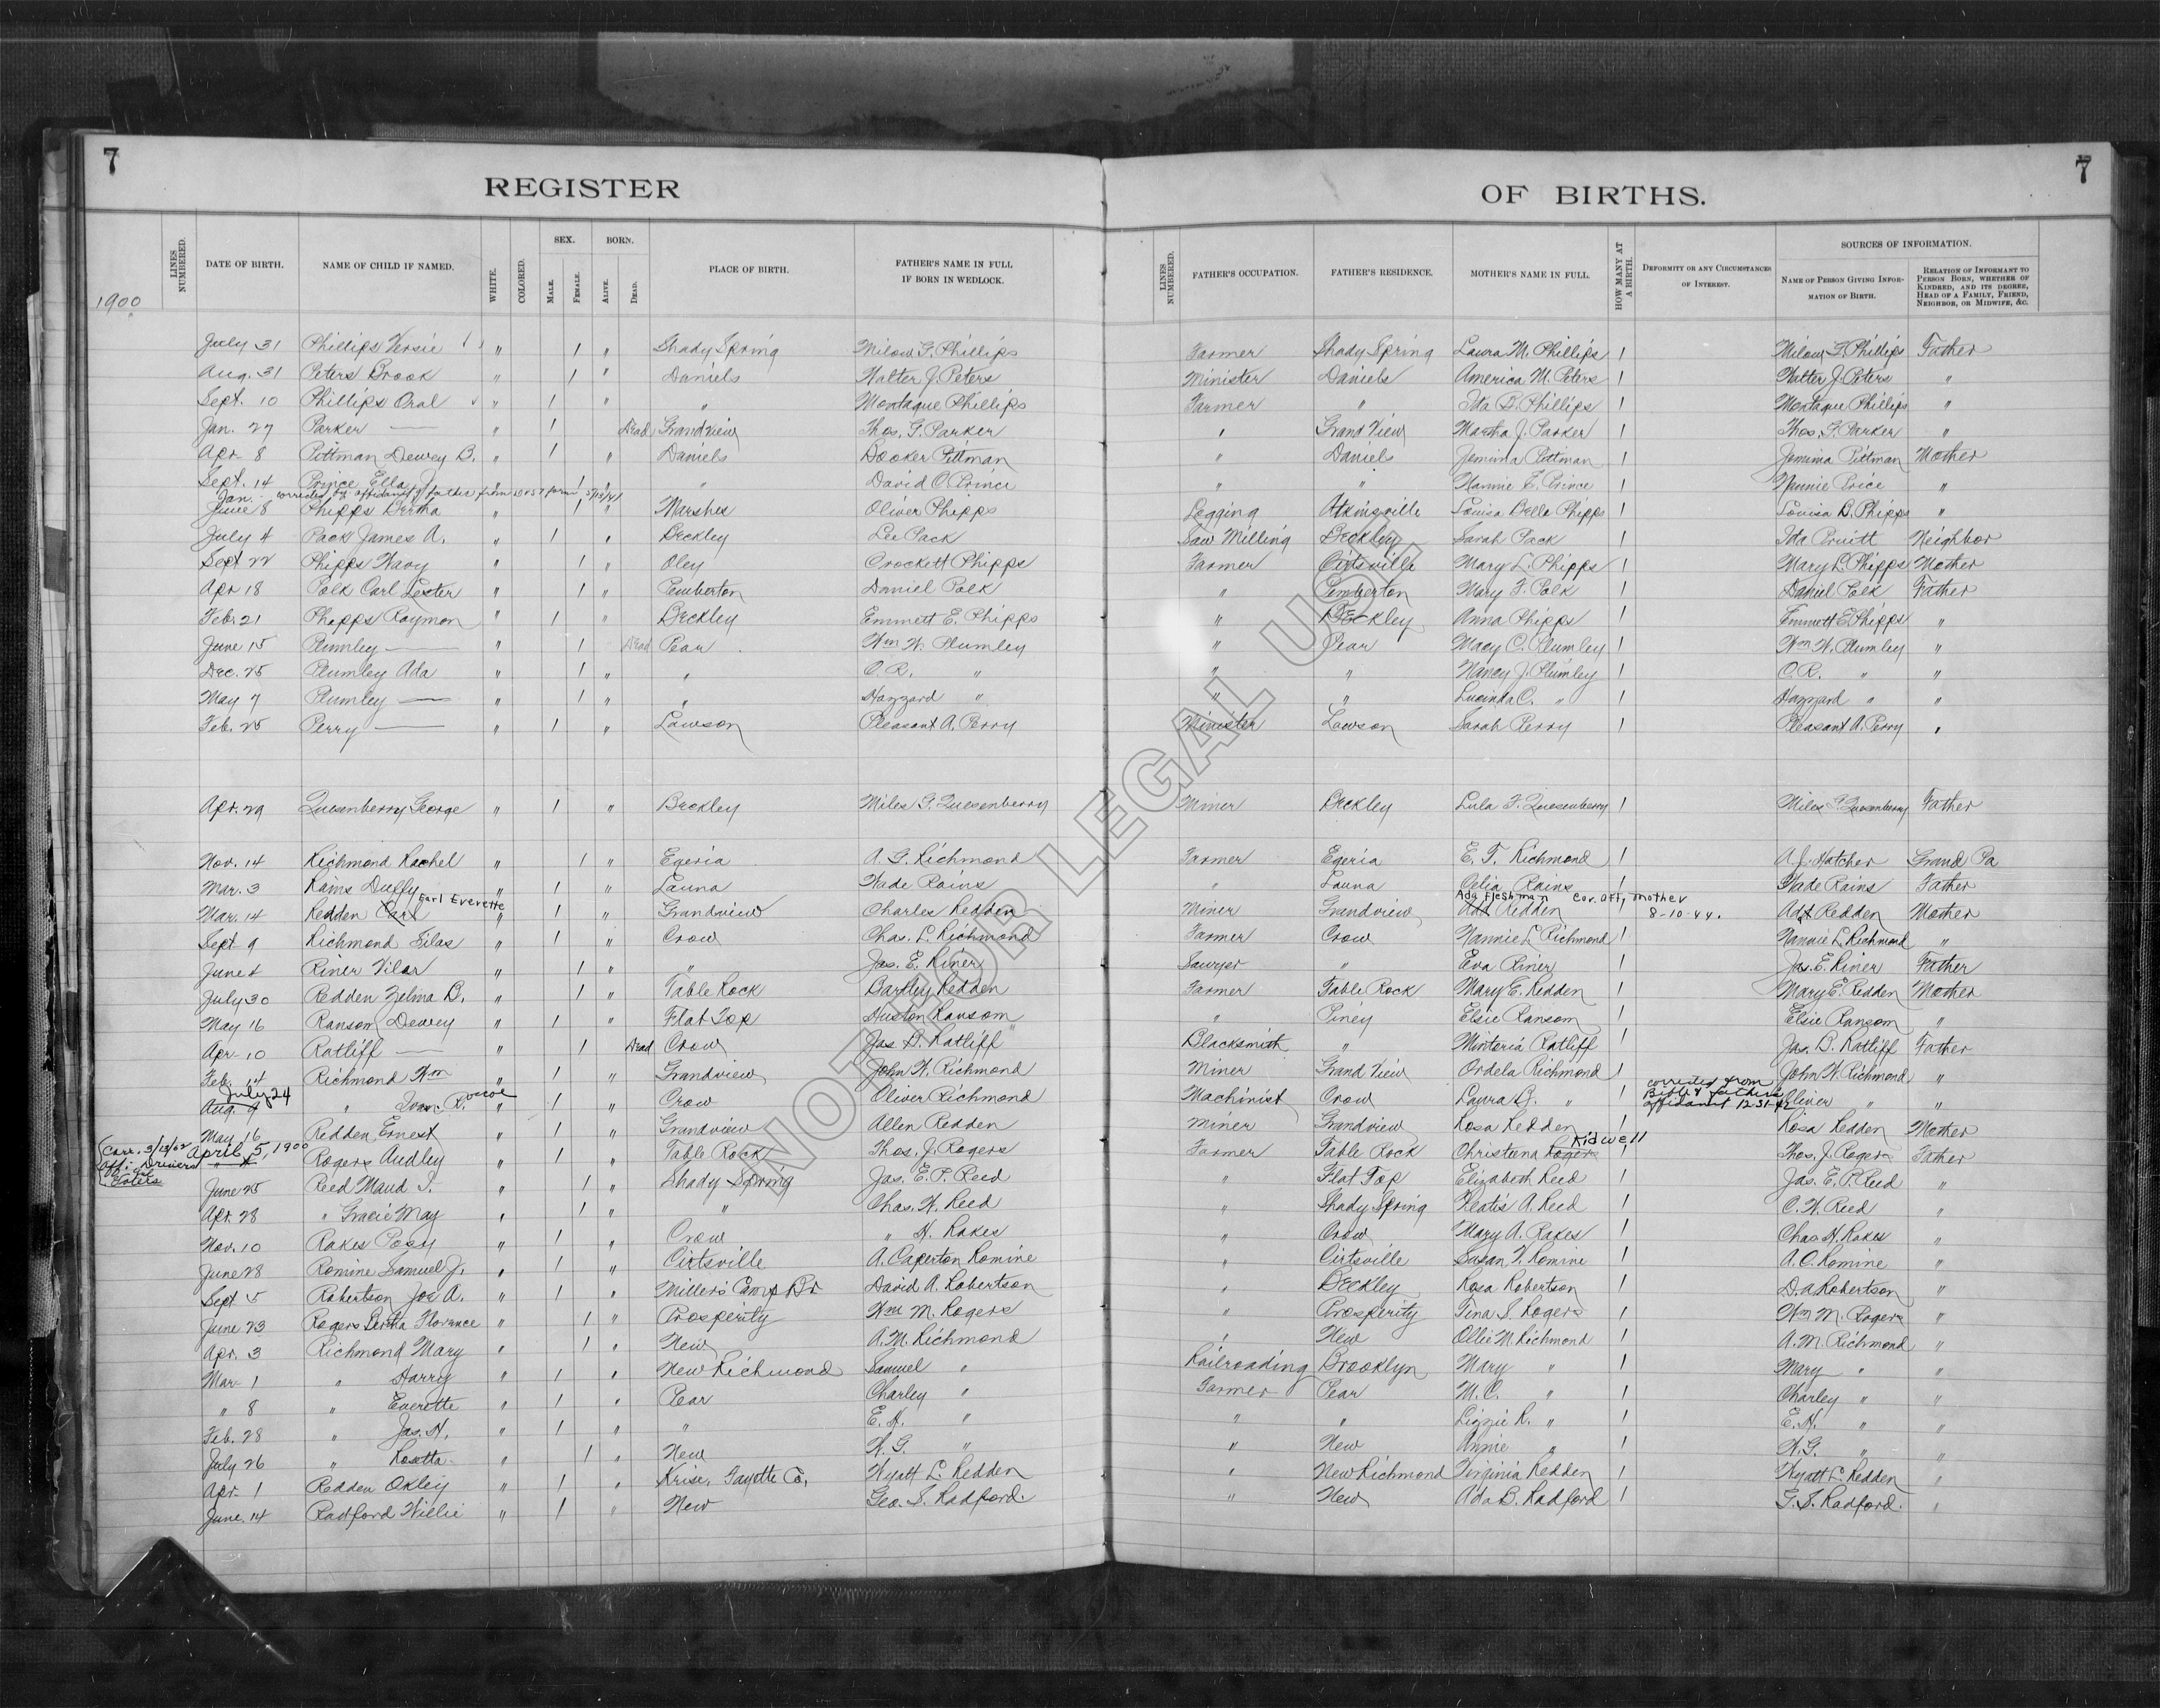 7 7
REGISTER OF BIRTHS.
1900
LINES NUMBERED. DATE OF BIRTH. NAME OF CHILD IF NAMED. WHITE. COLORED. SEX. Male. Female. BORN. Alive. Dead. PLACE OF BIRTH. FATHER'S NAME IN FULL IF BORN IN WEDLOCK. LINES NUMBERED. FATHER'S OCCUPATION. FATHER'S RESIDENCE. MOTHER'S NAME IN FULL. HOW MANY AT A BIRTH. Deformity or any Circumstances of Interest. SOURCES OF INFORMATION. Name of Person Giving Information of Birth. Relation of Informant to Person Born, whether of Kindred, and its degree, Head of a Family, Friend, Neighbor, or Midwife, &c.
July 31 Phillips Versie " 1 " Shady Spring Milow G. Phillips Farmer Shady Spring Laura M. Phillips 1 Milow G. Phillips Father
Aug. 31 Peters Brook " 1 " Daniels Walter J. Peters Minister Daniels America M. Peters 1 Walter J. Peters "
Sept. 10 Phillips Oral " 1 " " Montague Phillips Farmer " Ida Phillips 1 Montague Phillips "
Jan. 27 Parker — " 1 Dead Grandview Thos. G. Parker " Grand View Martha J. Parker 1 Thos. G. Parker "
Apr 8 Pittman Dewey B. " 1 " Daniels Booker Pittman " Daniels Jemima Pittman 1 Jemima Pittman Mother
Sept. 14 Prince Ella J. " 1 " " David O. Prince " " Nannie E. Prince 1 Nannie Price "
Jan. corrected by affidavit of father from form
June 8 Phipps Bertha " 1 " Marshes Oliver Phipps Logging Atkinsville Louisa Bella Phipps 1 Louisa B. Phipps "
July 4 Pack James A. " 1 " Beckley Lee Pack Saw Milling Beckley Sarah Pack 1 Ida Pruitt Neighbor
Sept 22 Phipps Navy " 1 " Oley Crockett Phipps Farmer Cirtsville Mary L. Phipps 1 Mary L. Phipps Mother
Apr 18 Polk Carl Lester " 1 " Pemberton Daniel Polk " Pemberton Mary F. Polk 1 Daniel Polk Father
Feb. 21 Phapps Raymon " 1 " Beckley Emmett E. Phipps " Beckley Anna Phipps 1 Emmett E. Phipps "
June 15 Plumley — " 1 Dead Pear Wm W. Plumley " Pear Macy C. Plumley 1 Wm W. Plumley "
Dec. 25 Plumley Ada " 1 " " O. R. " " " Nancy J. Plumley 1 O. R. " "
May 7 Plumley — " 1 " " Hazzard " " " Lucinda C. " 1 Hazzard " "
Feb. 25 Perry — " 1 " Lawson Pleasant A. Perry Minister Lawson Sarah Perry 1 Pleasant A. Perry "
Apr. 29 Quesenberry George " 1 " Beckley Miles G. Quesenberry Miner Beckley Lula F. Quesenberry 1 Miles G. Quesenberry Father
Nov. 14 Richmond Rachel " 1 " Egeria A. G. Richmond Farmer Egeria E. T. Richmond 1 A. J. Hatcher Grand Pa
Mar. 3 Rains Duffy " 1 " Launa Wade Rains " Launa Celia Rains 1 Wade Rains Father
Earl Everette Ada Fleshman Cor. aff, mother
Mar. 14 Redden Carl " 1 " Grandview Charles Redden Miner Grandview Redden 1 8-10-44. Redden Mother
Sept 9 Richmond Silas " 1 " Crow Chas. L. Richmond Farmer Crow Nannie L. Richmond 1 Nannie L. Richmond "
June 2 Riner Vilas " 1 " " Jas. E. Riner Sawyer " Eva Riner 1 Jas. E. Riner Father
July 30 Redden Zelma B. " 1 " Table Rock Bartley Redden Farmer Table Rock Mary E. Redden 1 Mary E. Redden Mother
May 16 Ransom Dewey " 1 " Flat Top Huston Ransom " Piney Elsie Ransom 1 Elsie Ransom "
Apr 10 Ratliff — " 1 Dead Crow Jas. B. Ratliff Blacksmith " Ratliff 1 Jas. B. Ratliff Father
Feb. 14 Richmond Wm " 1 " Grandview John W. Richmond Miner Grand View Ordela Richmond 1 John W. Richmond "
July 24 Roscoe corrected from
Aug. 9 " Ivan R. " 1 " Crow Oliver Richmond Machinist Crow Laura B. " 1 Bible & father's affidavit 12-31-42 Oliver " "
May 16 Redden Ernest " 1 " Grandview Allen Redden Miner Grandview Rosa Redden 1 Rosa Redden Mother
Corr. 3/13/62 April 5, 1900 Kidwell
aff: Drivers Rogers Audley " 1 " Table Rock Thos. J. Rogers Farmer Table Rock Christena Rogers 1 Thos. J. Rogers Father
June 25 Reed Maud I. " 1 " Shady Spring Jas. E. P. Reed " Flat Top Elizabeth Reed 1 Jas. E. P. Reed "
Apr. 28 " Gracie May " 1 " " Chas. W. Reed " Shady Spring A. Reed 1 C. W. Reed "
Nov. 10 Rakes Posy " 1 " Crow " H. Rakes " Crow Mary A. Rakes 1 Chas H. Rakes "
June 28 Romine Samuel J. " 1 " Cirtsville A. Caperton Romine " Cirtsville Susan V. Romine 1 A. C. Romine "
Sept 5 Robertson Joe A. " 1 " Millers Camp Br David A. Robertson " Beckley Rosa Robertson 1 D. A. Robertson "
June 23 Rogers Bertha Florence " 1 " Prosperity Wm M. Rogers " Prosperity Tina S. Rogers 1 Wm M. Rogers "
Apr. 3 Richmond Mary " 1 " New A. M. Richmond " New Ollie M. Richmond 1 A. M. Richmond "
Mar 1 " Harry " 1 " New Richmond Samuel " Railroading Brooklyn Mary " 1 Mary " "
" 8 " Everette " 1 " Pear Charley " Farmer Pear M. C. " 1 Charley " "
Feb. 28 " Jas. H. " 1 " " E. H. " " " Lizzie R. " 1 E. H. " "
July 26 " Rosetta " 1 " New W. G. " " New Annie " 1 W. G. " "
Apr. 1 Redden Oxley " 1 " Krise, Fayette Co, Wyatt L. Redden " New Richmond Virginia Redden 1 Wyatt L. Redden "
June 14 Radford Willie " 1 " New Geo. S. Radford. " New Ada B. Radford 1 G. S. Radford. "
NOT FOR LEGAL USE